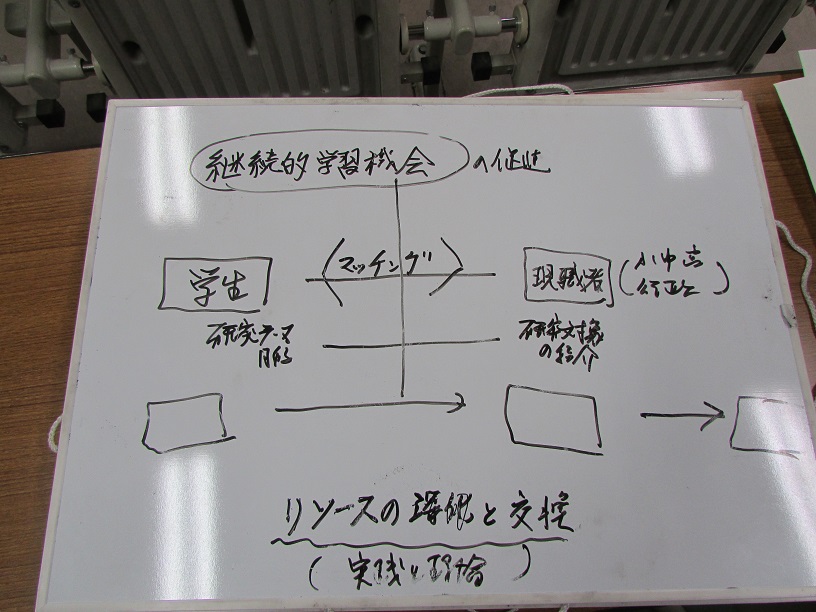 継続的学習機会の促進
学生
(マッチング)
現職者
(小中高
行政)
研究テーマ
目的
研究対象
の紹介
リソースの環境と交換
(実践と理論)